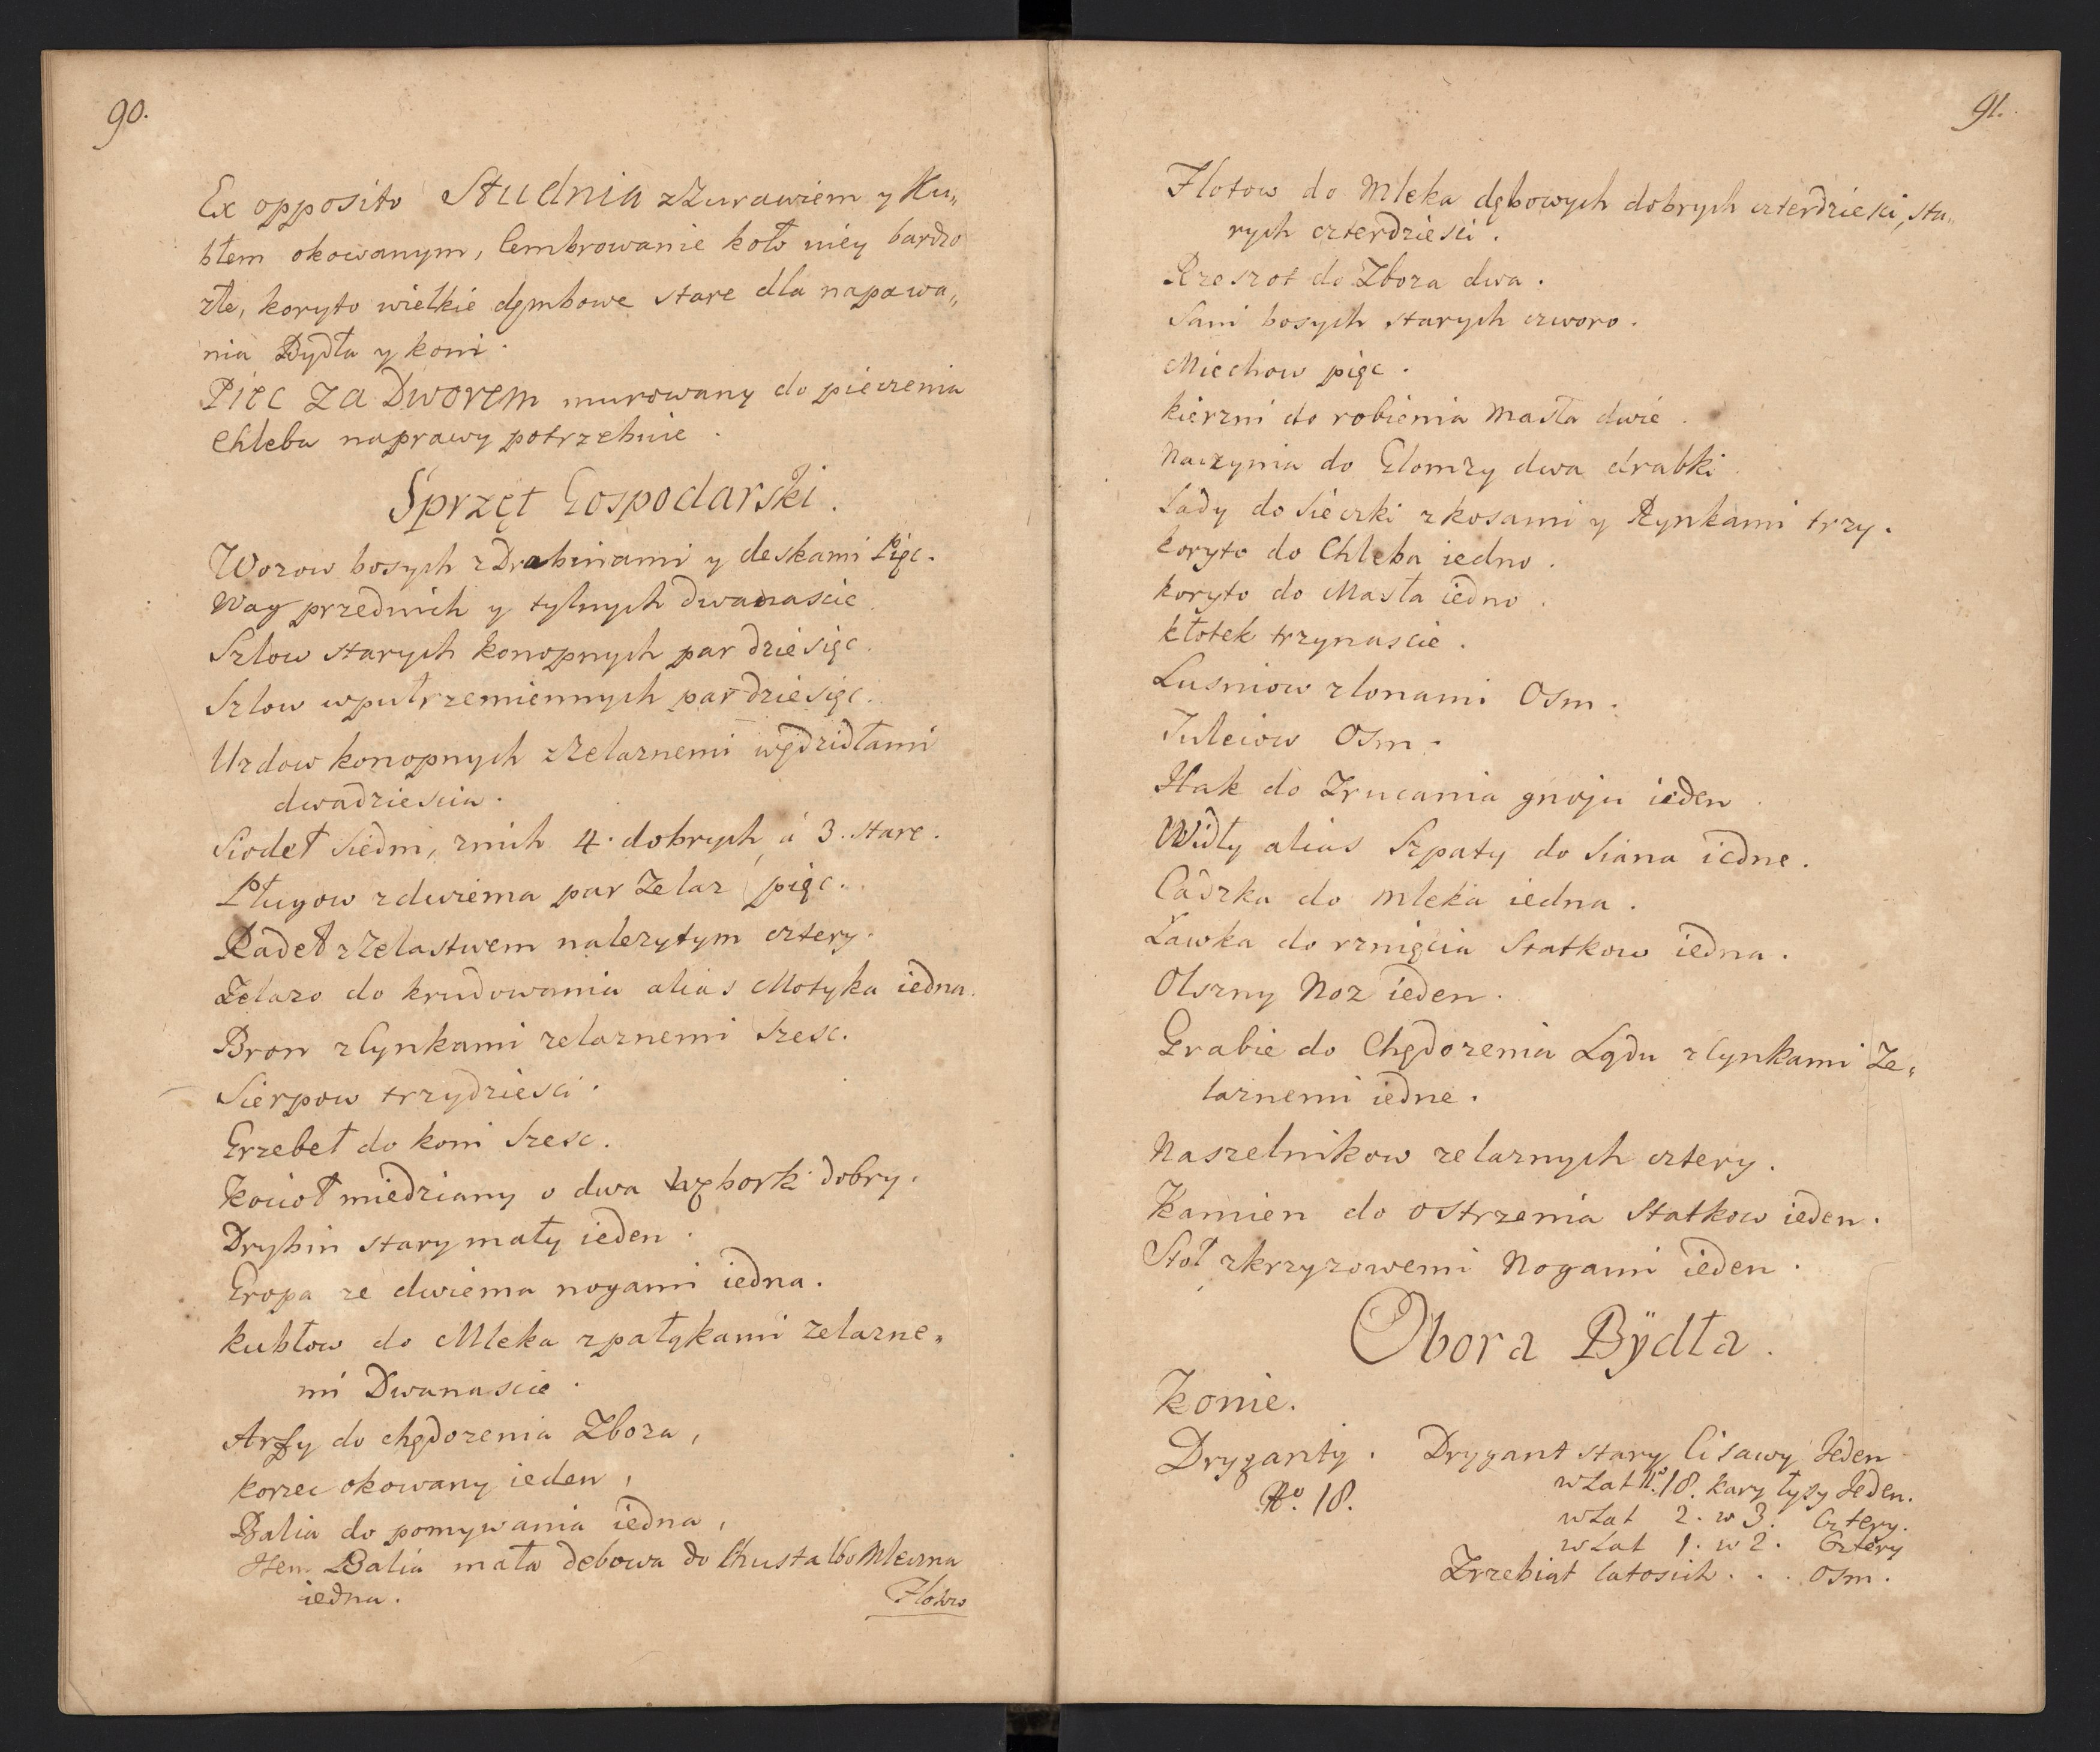 90.
Ex opposito Studnia z Zurawiem y Ku„
błem okowanym, Cembrowanie koło niey bardzo
złe, koryto wielkie dęmbowe stare dla napawa„
nia Bydła y koni.
Piec za Dworem murowany do pieczenia
Chleba naprawy potrzebuie.
Sprzęt Gospodarski.
Wozow bosych z Drabinami y deskami Pięc.
Wag przednich y tylnych dwanascie.
Szlow starych konopnych par dziesięc.
Szlow wpułrzemiennych par dziesięc.
Uzdow konopnych z Zelaznemi wędzidłami
dwadziescia.
Siodeł Siedm, z nich 4. dobrych, á 3. stare.
Pługow z dwiema par Zelaz pięc.
Radeł z Zelastwem nalezytym cztery.
Zelazo do krudowania alias Motyka iedna.
Bron z Cynkami zelaznemi Szesc.
Sierpow trzydziesci.
Grzebeł do koni Szesc.
Kocioł miedziany o dwa węborki dobry.
Drybin stary mały ieden.
Gropa ze dwiema nogami iedna.
kubłow do Mleka z pałąkami zelazne„
mi Dwanascie.
Arfy do chędozenia Zboza,
korzec okowany ieden,
Balia do pomywania iedna,
Item Balia mała debowa do Chusta lbo Mleczna
iedna.
Flotow
91.
Flotow do Mleka dębowych dobrych czterdziesci, sta„
rych czterdziesci.
Rzeszot do Zboza dwa.
Sani bosych starych czworo.
Miechow pięc.
kierzni do robienia Masła dwie.
Naczynia do Glomzy dwa drabki.
Lady do Sieczki z kosami y Rynkami trzy.
koryto do Chleba iedno.
koryto do Masła iedno.
kłotek trzynascie.
Lusniow z lonami Osm.
Tuleiow Osm.
Hak do Zrucania gnoju ieden.
Widły alias Szpaty do Siana iedne.
Cadzka do mleka iedna.
Ławka do rznięcia Statkow iedna.
Olszny Noz ieden.
Grabie do Chędozenia Lądu z Cynkami Ze„
laznemi iedne.
Naszelnikow zelaznych cztery.
Kamien do ostrzenia Statkow ieden.
Stoł z krzyzowemi Nogami ieden.
Obora Bÿdła.
Konie.
Dryganty. Drygant stary Cisawy Jeden
No. 18.
w Lat No. 18. kary łysy Jeden.
w Lat 2. w 3. Cztery.
w Lat 1. w 2. Cztery
Zrzebiąt latosich . . . Osm.